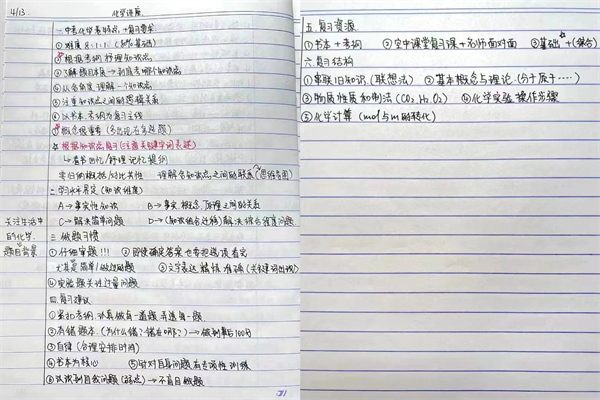 4/13.
化学讲座
一.中考化学考特点+复习要求
①难度 8:1:1 (80%基础)
②根据考纲梳理知识点
③了解题目本质→到底考哪个知识点
④从各角度理解一个知识点
⑤注重知识点之间的逻辑关系
⑥以书本、考纲为复习主线
⑦概念很重要(多出现在选择题)
☆根据知识点复习(注意关键字词表述)
↳看书回忆/梳理记忆提纲
学归纳概括/对比共性 理解各知识点之间的联系(思维导图)
二.学习水平界定(知识难度)
A→事实性知识 B→事实、概念、原理之间的关系
C→解决简单问题 D→(知识组合迁移)解决综合程度问题
关注生活中
的化学
题目背景
三.做题习惯
①仔细审题!!! ②即使确定答案也要把选项看完
尤其是简单/做过的题 ③文字表达精炼准确(关键词出现)
④实验题关注过量问题
四.复习建议
①紧扣考纲,认真做每一套题,弄透每一题
②有错题本(为什么错?错在哪?)→做到真正100分
③自律(合理安排时间)
④书本为核心 ⑤针对自身问题有专项性训练
⑥认识到自我问题(弱点)→不盲目做题
五.复习资源
①书本+考纲 ②空中课堂复习课+名师面对面 ③基础+(综合)
六.复习结构
①串联旧知识(联想法) ②基本概念与理论(分子质子····)
③物质性质和制法(CO₂、H₂、O₂) ④化学实验操作步骤
⑤化学计算(mol与m的转化)